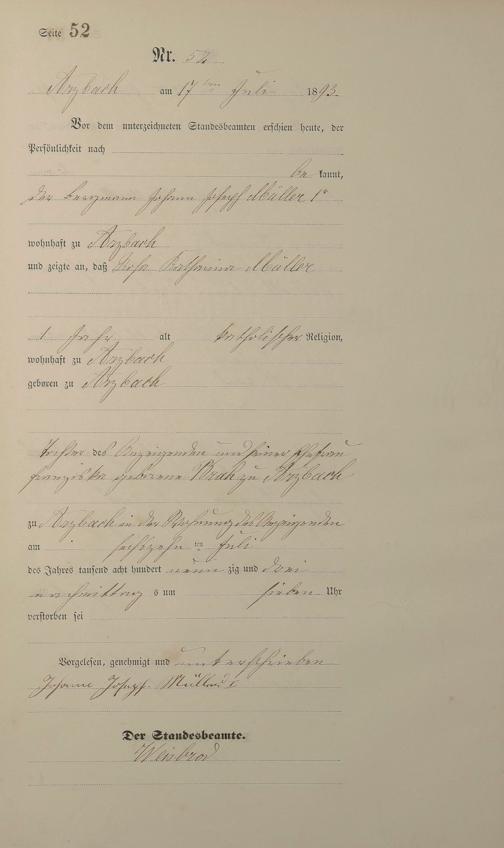 Seite 52
Nr. 52
Arzbach am 17ten Juli 1893.
Vor dem unterzeichneten Standesbeamten erschien heute, der
Persönlichkeit nach
be kannt,
der Bergmann Johann Joseph Müller 1r
wohnhaft zu Arzbach
und zeigte an, daß Rosa Katharina Müller
1 Jahr alt katholischer Religion,
wohnhaft zu Arzbach
geboren zu Arzbach
Tochter des Anzeigenden und seiner Ehefrau
Franziska geborene zu Arzbach
zu Arzbach in der Wohnung des Anzeigenden
am sechszehnten Juli
des Jahres tausend acht hundert neun zig und drei
nachmittags um sieben Uhr
verstorben sei
Vorgelesen, genehmigt und unterschrieben
Johann Joseph Müller 1
Der Standesbeamte.
Weisbrod